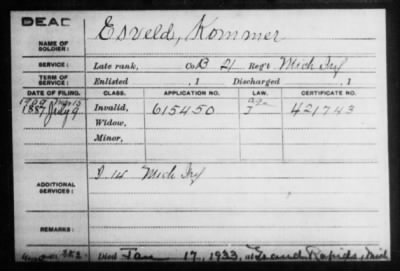 DEAD
NAME OF SOLDIER: Esveld, Kommer
SERVICE: Late rank, Co. B 21 Reg't Mich Inf
TERM OF SERVICE: Enlisted , 1 Discharged , 1
DATE OF FILING. CLASS. APPLICATION NO. LAW. CERTIFICATE NO.
1909 Mar 15 age
1887 July 9 Invalid, 615450 J 421743
Widow,
Minor,
ADDITIONAL SERVICES: D 14 Mich Inf
REMARKS:
Died Jan 17, 1933, at Grand Rapids, Mich